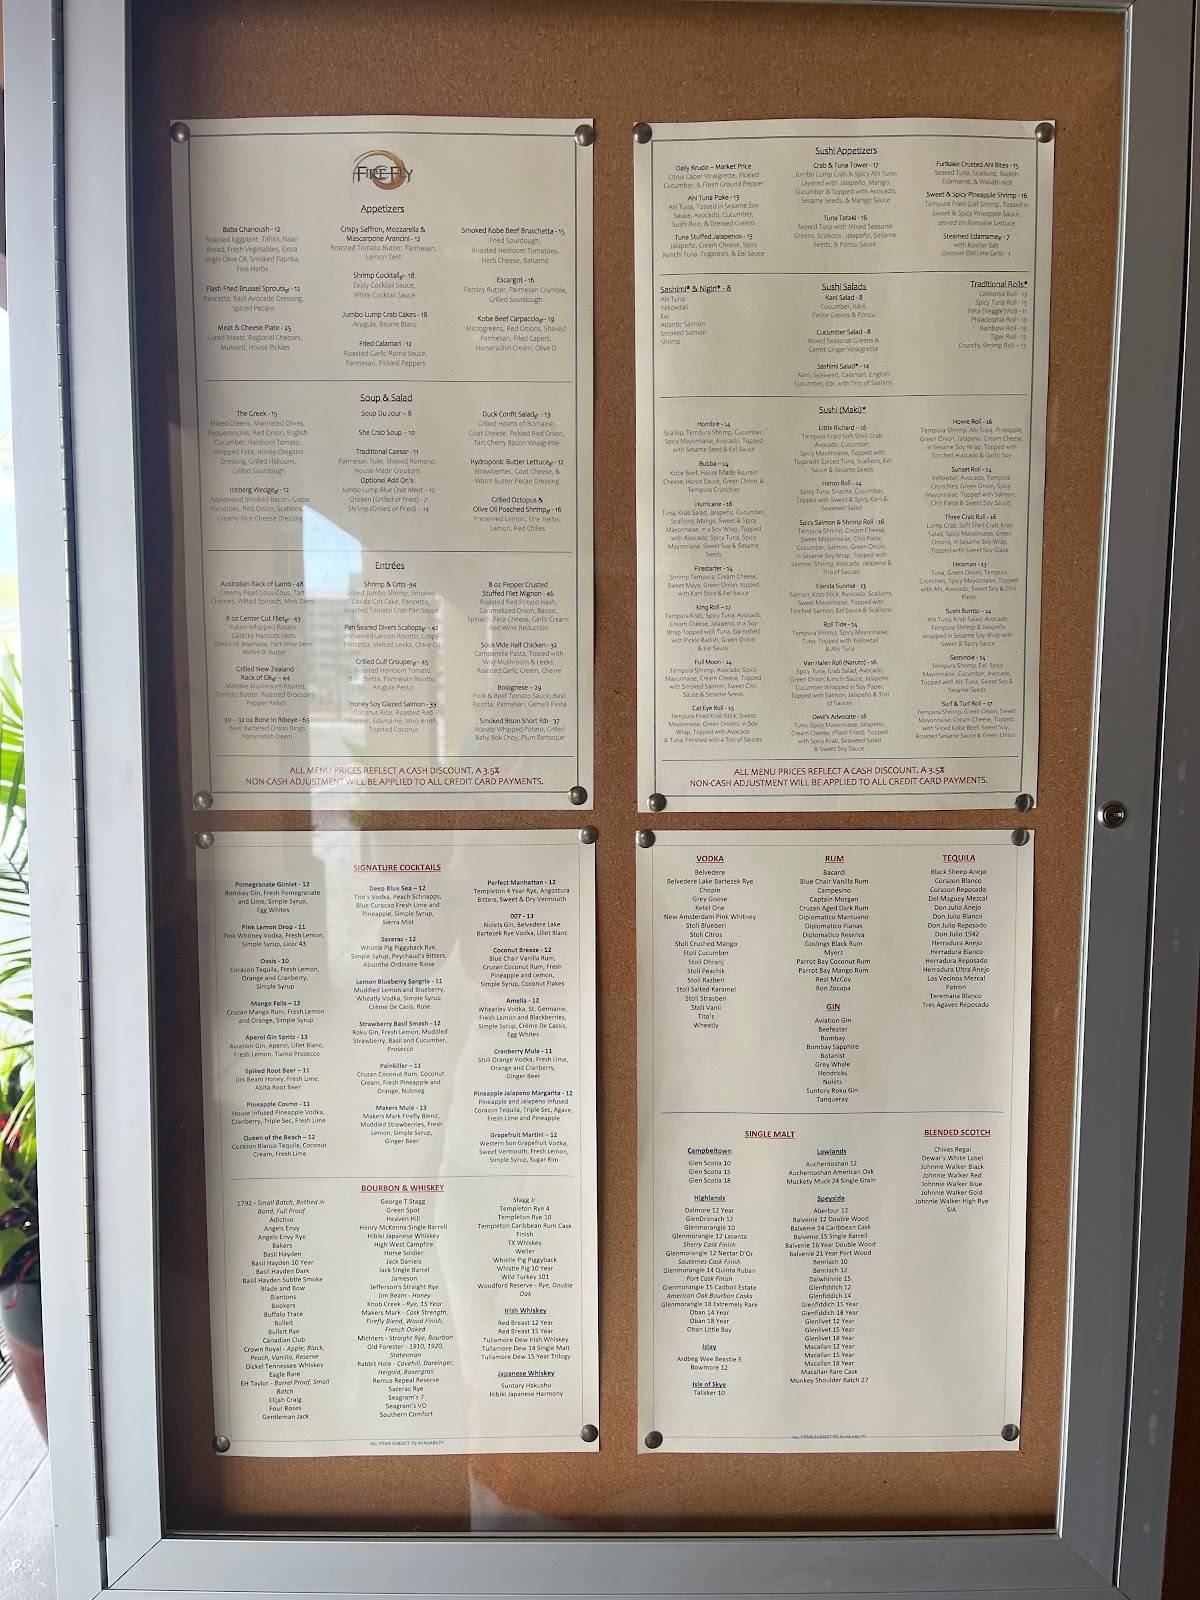 FIREFLY
Appetizers
Baba Ghanoush - 12
Roasted Eggplant, Tahini, Naan
Bread, Fresh Vegetables, Extra
Virgin Olive Oil, Smoked Paprika,
Fine Herbs
Flash Fried Brussel Sproutsgf - 12
Pancetta, Basil Avocado Dressing,
Spiced Pecans
Meat & Cheese Plate - 25
Cured Meats, Regional Cheeses,
Mustard, House Pickles
Crispy Saffron, Mozzarella &
Mascarpone Arancini - 12
Roasted Tomato Butter, Parmesan,
Lemon Zest
Shrimp Cocktailgf - 18
Zesty Cocktail Sauce,
White Cocktail Sauce
Jumbo Lump Crab Cakes - 18
Arugula, Beurre Blanc
Fried Calamari - 12
Roasted Garlic Roma Sauce,
Parmesan, Pickled Peppers
Smoked Kobe Beef Bruschetta - 15
Fried Sourdough,
Roasted Heirloom Tomatoes,
Herb Cheese, Balsamic
Escargot - 16
Parsley Butter, Parmesan Crumble,
Grilled Sourdough
Kobe Beef Carpacciogf - 19
Microgreens, Red Onions, Shaved
Parmesan, Fried Capers,
Horseradish Cream, Olive O
Soup & Salad
The Greek - 15
Mixed Greens, Marinated Olives,
Pepperoncinis, Red Onion, English
Cucumber, Heirloom Tomato,
Whipped Feta, Honey-Oregano
Dressing, Grilled Halloumi,
Grilled Sourdough
Iceberg Wedgegf - 12
Applewood Smoked Bacon, Grape
Tomatoes, Red Onion, Scallions,
Creamy Blue Cheese Dressing
Soup Du Jour – 8
She Crab Soup – 10
Traditional Caesar - 11
Parmesan Tuile, Shaved Romano,
House Made Croutons
Optional Add On's:
Jumbo Lump Blue Crab Meat – 12
Chicken (Grilled or Fried) - 7
Shrimp (Grilled or Fried) – 14
Duck Confit Saladgf - 13
Grilled Hearts of Romaine,
Goat Cheese, Pickled Red Onion,
Tart Cherry Bacon Vinaigrette
Hydroponic Butter Lettucegf - 12
Strawberries, Goat Cheese, &
Warm Butter Pecan Dressing
Grilled Octopus &
Olive Oil Poached Shrimpgf - 16
Preserved Lemon, Fine Herbs,
Lemon, Red Chilies
Entrées
Australian Rack of Lamb - 48
Creamy Pearl Cous-Cous, Tart
Cherries, Wilted Spinach, Mint Demi
8 oz Center Cut Filetgf - 43
Yukon Whipped Potato,
Garlicky Haricots Verts
Choice of: Bearnaise, Port Wine Demi,
Maître D' Butter
Grilled New Zealand
Rack of Elkgf – 44
Maitake Mushroom Risotto,
Tomato Butter, Roasted Broccolini,
Pepper Relish
30 – 32 oz Bone In Ribeye - 65
Beer Battered Onion Rings
Horseradish Cream
Shrimp & Grits -34
Grilled Jumbo Shrimp, Smoked
Gouda Grit Cake, Pancetta,
Roasted Tomato Crab Pan Sauce
Pan Seared Divers Scallopsgf – 42
Preserved Lemon Risotto, Crispy
Pancetta, Melted Leeks, Chive Oil
Grilled Gulf Groupergf - 45
Roasted Heirloom Tomato
Bruschetta, Parmesan Risotto,
Arugula Pesto
Honey Soy Glazed Salmon - 33
Coconut Rice, Roasted Red
Pepper, Edamame, Miso Broth,
Toasted Coconut
8 oz Pepper Crusted
Stuffed Filet Mignon - 46
Roasted Red Potato Hash,
Carmelized Onion, Bacon,
Spinach, Feta Cheese, Garlic Cream,
Red Wine Reduction
Sous Vide Half Chicken - 32
Campanelle Pasta, Tossed with
Wild Mushroom & Leeks,
Roasted Garlic Cream, Chevre
Bolognese – 29
Pork & Beef Tomato Sauce, Basil
Ricotta, Parmesan, Gemelli Pasta
Smoked Bison Short Rib - 37
Wasabi Whipped Potato, Grilled
Baby Bok Choy, Plum Barbeque
ALL MENU PRICES REFLECT A CASH DISCOUNT. A 3.5%
NON-CASH ADJUSTMENT WILL BE APPLIED TO ALL CREDIT CARD PAYMENTS.
Sushi Appetizers
Daily Krudo – Market Price
Citrus Caper Vinaigrette, Pickled
Cucumber, & Fresh Ground Pepper
Ahi Tuna Poke - 13
Ahi Tuna, Tossed in Sesame Soy
Sauce, Avocado, Cucumber,
Sushi Rice, & Dressed Greens
Tuna Stuffed Jalapenos - 15
Jalapeño, Cream Cheese, Spicy
Kimchi Tuna, Togarashi, & Eel Sauce
Crab & Tuna Tower - 17
Jumbo Lump Crab & Spicy Ahi Tuna,
Layered with Jalapeño, Mango,
Cucumber & Topped with Avocado,
Sesame Seeds, & Mango Sauce
Tuna Tataki - 16
Seared Tuna with Mixed Seasonal
Greens, Scallions, Jalapeño, Sesame
Seeds, & Ponzu Sauce
Furikake Crusted Ahi Bites - 15
Seared Tuna, Scallions, Radish,
Edamame, & Wasabi Aioli
Sweet & Spicy Pineapple Shrimp - 16
Tempura Fried Gulf Shrimp, Tossed in
Sweet & Spicy Pineapple Sauce,
served on Romaine Lettuce
Steamed Edamamegf - 7
with Kosher Salt
Optional: Chili Lime Garlic - 1
Sashimi* & Nigiri* - 8
Ahi Tuna
Yellowtail
Eel
Atlantic Salmon
Smoked Salmon
Shrimp
Sushi Salads
Kani Salad - 8
Cucumber, Kani,
Petite Greens & Ponzu
Cucumber Salad - 8
Mixed Seasonal Greens &
Carrot Ginger Vinaigrette
Sashimi Salad* - 14
Kani, Seaweed, Calamari, English
Cucumber, Ebi, with Trio of Sashimi
Traditional Rolls*
California Roll - 13
Spicy Tuna Roll - 13
Peta (Veggie) Roll - 11
Philadelphia Roll - 13
Rainbow Roll - 13
Tiger Roll - 13
Crunchy Shrimp Roll – 13
Sushi (Maki)*
Hombre - 14
Scallop, Tempura Shrimp, Cucumber,
Spicy Mayonnaise, Avocado, Topped
with Sesame Seed & Eel Sauce
Bubba – 14
Kobe Beef, House Made Boursin
Cheese, Hoisin Sauce, Green Onion, &
Tempura Crunchies
Hurricane - 16
Tuna, Krab Salad, Jalapeño, Cucumber,
Scallions, Mango, Sweet & Spicy
Mayonnaise, in a Soy Wrap, Topped
with Avocado, Spicy Tuna, Spicy
Mayonnaise, Sweet Soy & Sesame
Seeds
Firestarter - 14
Shrimp Tempura, Cream Cheese,
Sweet Mayo, Green Onion, topped
with Kani Stick & Eel Sauce
King Roll – 17
Tempura Krab, Spicy Tuna, Avocado,
Cream Cheese, Jalapeno, in a Soy
Wrap Topped with Tuna, Garnished
with Pickle Radish, Green Onion
& Eel Sauce
Full Moon - 14
Tempura Shrimp, Avocado, Spicy
Mayonnaise, Cream Cheese, Topped
with Smoked Salmon, Sweet Chili
Sauce & Sesame Seeds
Cat Eye Roll - 15
Tempura Fried Krab Stick, Sweet
Mayonnaise, Green Onions, in Soy
Wrap, Topped with Avocado
& Tuna, Finished with a Trio of Sauces
Little Richard – 16
Tempura Fried Soft Shell Crab,
Avocado, Cucumber,
Spicy Mayonnaise, Topped with
Togarashi Spiced Tuna, Scallions, Eel
Sauce & Sesame Seeds
Hanzo Roll - 14
Spicy Tuna, Sriracha, Cucumber,
Topped with Sweet & Spicy Kani &
Seaweed Salad
Spicy Salmon & Shrimp Roll - 16
Tempura Shrimp, Cream Cheese,
Sweet Mayonnaise, Chili Paste,
Cucumber, Salmon, Green Onion,
in Sesame Soy Wrap, Topped with
Salmon, Shrimp, Avocado, Jalapeno &
Trio of Sauces
Florida Sunrise - 13
Salmon, Krab Stick, Avocado, Scallions,
Sweet Mayonnaise, Topped with
Torched Salmon, Eel Sauce & Scallions
Roll Tide - 14
Tempura Shrimp, Spicy Mayonnaise,
Tuna, Topped with Yellowtail
& Ahi Tuna
Van Halen Roll (Naruto) - 16
Spicy Tuna, Krab Salad, Avocado,
Green Onion, Kimchi Sauce, Jalapeño,
Cucumber Wrapped in Soy Paper,
Topped with Salmon, Jalapeño & Trio
of Sauces
Devil's Advocate - 16
Tuna, Spicy Mayonnaise, Jalapeño,
Cream Cheese, (Flash Fried), Topped
with Spicy Krab, Seaweed Salad
& Sweet Soy Sauce
Howie Roll - 16
Tempura Shrimp, Ahi Tuna, Pineapple,
Green Onion, Jalapeno, Cream Cheese,
in Sesame Soy Wrap, Topped with
Torched Avocado & Garlic Soy
Sunset Roll - 14
Yellowtail, Avocado, Tempura
Crunchies, Green Onion, Spicy
Mayonnaise, Topped with Salmon,
Chili Paste & Sweet Soy Sauce
Three Crab Roll - 16
Lump Crab, Soft Shell Crab, Krab
Salad, Spicy Mayonnaise, Green
Onions, in Sesame Soy Wrap,
Topped with Sweet Soy Glaze
Heisman - 13
Tuna, Green Onion, Tempura
Crunchies, Spicy Mayonnaise, Topped
with Ahi, Avocado, Sweet Soy & Chili
Paste
Sushi Burrito - 14
Ahi Tuna, Krab Salad, Avocado,
Tempura Shrimp & Jalapeño
wrapped in Sesame Soy Wrap with
Sweet & Spicy Sauce
Seminole - 14
Tempura Shrimp, Eel, Spicy
Mayonnaise, Cucumber, Avocado,
Topped with Ahi Tuna, Sweet Soy &
Sesame Seeds
Surf & Turf Roll - 17
Tempura Shrimp, Green Onion, Sweet
Mayonnaise, Cream Cheese, Topped
with Sliced Kobe Beef, Sweet Soy,
Roasted Sesame Sauce & Green Onion
ALL MENU PRICES REFLECT A CASH DISCOUNT. A 3.5%
NON-CASH ADJUSTMENT WILL BE APPLIED TO ALL CREDIT CARD PAYMENTS.
SIGNATURE COCKTAILS
Pomegranate Gimlet - 12
Bombay Gin, Fresh Pomegranate
and Lime, Simple Syrup,
Egg Whites
Pink Lemon Drop - 11
Pink Whitney Vodka, Fresh Lemon,
Simple Syrup, Licor 43
Oasis - 10
Corazon Tequila, Fresh Lemon,
Orange and Cranberry,
Simple Syrup
Mango Falls – 12
Cruzan Mango Rum, Fresh Lemon
and Orange, Simple Syrup
Aperol Gin Spritz - 13
Aviation Gin, Aperol, Lillet Blanc,
Fresh Lemon, Tiamo Prosecco
Spiked Root Beer – 11
Jim Beam Honey, Fresh Lime,
Abita Root Beer
Pineapple Cosmo - 11
House Infused Pineapple Vodka,
Cranberry, Triple Sec, Fresh Lime
Queen of the Beach – 12
Corazon Blanco Tequila, Coconut
Cream, Fresh Lime
Deep Blue Sea – 12
Tito's Vodka, Peach Schnapps,
Blue Curacao Fresh Lime and
Pineapple, Simple Syrup,
Sierra Mist
Sazerac - 12
Whistle Pig Piggyback Rye,
Simple Syrup, Peychaud's Bitters,
Absinthe Ordinaire Rinse
Lemon Blueberry Sangria - 11
Muddled Lemon and Blueberry,
Wheatly Vodka, Simple Syrup,
Crème De Casis, Rose
Strawberry Basil Smash - 12
Roku Gin, Fresh Lemon, Muddled
Strawberry, Basil and Cucumber,
Prosecco
Painkiller – 11
Cruzan Coconut Rum, Coconut
Cream, Fresh Pineapple and
Orange, Nutmeg
Makers Mule - 13
Makers Mark Firefly Blend,
Muddled Strawberries, Fresh
Lemon, Simple Syrup,
Ginger Beer
Perfect Manhattan - 12
Templeton 4 Year Rye, Angostura
Bitters, Sweet & Dry Vermouth
007 - 13
Nolets Gin, Belvedere Lake
Bartezek Rye Vodka, Lillet Blanc
Coconut Breeze - 12
Blue Chair Vanilla Rum,
Cruzan Coconut Rum, Fresh
Pineapple and Lemon,
Simple Syrup, Coconut Flakes
Amelia - 12
Wheatley Vodka, St. Germaine,
Fresh Lemon and Blackberries,
Simple Syrup, Crème De Cassis,
Egg Whites
Cranberry Mule - 11
Stoli Orange Vodka, Fresh Lime,
Orange and Cranberry,
Ginger Beer
Pineapple Jalapeno Margarita - 12
Pineapple and Jalapeno Infused
Corazon Tequila, Triple Sec, Agave,
Fresh Lime and Pineapple
Grapefruit Martini – 12
Western Son Grapefruit Vodka,
Sweet Vermouth, Fresh Lemon,
Simple Syrup, Sugar Rim
BOURBON & WHISKEY
1792 - Small Batch, Bottled in
Bond, Full Proof
Adictivo
Angels Envy
Angels Envy Rye
Bakers
Basil Hayden
Basil Hayden 10 Year
Basil Hayden Dark
Basil Hayden Subtle Smoke
Blade and Bow
Blantons
Bookers
Buffalo Trace
Bulleit
Bulleit Rye
Canadian Club
Crown Royal - Apple, Black,
Peach, Vanilla, Reserve
Dickel Tennessee Whiskey
Eagle Rare
EH Taylor - Barrel Proof, Small
Batch
Elijah Craig
Four Roses
Gentleman Jack
George T Stagg
Green Spot
Heaven Hill
Henry McKenna Single Barrell
Hibiki Japanese Whiskey
High West Campfire
Horse Soldier
Jack Daniels
Jack Single Barrel
Jameson
Jefferson's Straight Rye
Jim Beam - Honey
Knob Creek - Rye, 15 Year
Makers Mark - Cask Strength,
Firefly Blend, Wood Finish,
French Oaked
Michters - Straight Rye, Bourbon
Old Forester - 1910, 1920,
Statesman
Rabbit Hole - Cavehill, Dareinger,
Heigold, Boxergrail
Remus Repeal Reserve
Sazerac Rye
Seagram's 7
Seagram's VO
Southern Comfort
Stagg Jr
Templeton Rye 4
Templeton Rye 10
Templeton Caribbean Rum Cask
Finish
TX Whiskey
Weller
Whistle Pig Piggyback
Whistle Pig 10 Year
Wild Turkey 101
Woodford Reserve - Rye, Double
Oak
Irish Whiskey
Red Breast 12 Year
Red Breast 15 Year
Tullamore Dew Irish Whiskey
Tullamore Dew 14 Single Malt
Tullamore Dew 15 Year Trilogy
Japanese Whiskey
Suntory Hakushu
Hibiki Japanese Harmony
ALL ITEMS SUBJECT TO AVAILABILTY
VODKA
Belvedere
Belvedere Lake Bartezek Rye
Chopin
Grey Goose
Ketel One
New Amsterdam Pink Whitney
Stoli Blueberi
Stoli Citros
Stoli Crushed Mango
Stoli Cucumber
Stoli Ohranj
Stoli Peachik
Stoli Razberi
Stoli Salted Karamel
Stoli Strasberi
Stoli Vanil
Tito's
Wheatly
RUM
Bacardi
Blue Chair Vanilla Rum
Campesino
Captain Morgan
Cruzan Aged Dark Rum
Diplomatico Mantuano
Diplomatico Planas
Diplomatico Reserva
Goslings Black Rum
Myers
Parrot Bay Coconut Rum
Parrot Bay Mango Rum
Real McCoy
Ron Zocapa
GIN
Aviation Gin
Beefeater
Bombay
Bombay Sapphire
Botanist
Grey Whale
Hendricks
Nolets
Suntory Roku Gin
Tanqueray
TEQUILA
Black Sheep Anejo
Corazon Blanco
Corazon Reposado
Del Maguey Mezcal
Don Julio Anejo
Don Julio Blanco
Don Julio Reposado
Don Julio 1942
Herradura Anejo
Herradura Blanco
Herradura Reposado
Herradura Ultra Anejo
Los Vecinos Mezcal
Patron
Teremana Blanco
Tres Agaves Reposado
SINGLE MALT
Campbeltown
Glen Scotia 10
Glen Scotia 15
Glen Scotia 18
Highlands
Dalmore 12 Year
GlenDronach 12
Glenmorangie 10
Glenmorangie 12 Lasanta
Sherry Cask Finish
Glenmorangie 12 Nectar D'Or
Sauternes Cask Finish
Glenmorangie 14 Quinta Ruban
Port Cask Finish
Glenmorangie 15 Cadboll Estate
American Oak Bourbon Casks
Glenmorangie 18 Extremely Rare
Oban 14 Year
Oban 18 Year
Oban Little Bay
Islay
Ardbeg Wee Beastie 5
Bowmore 12
Isle of Skye
Talisker 10
Lowlands
Auchentoshan 12
Auchentoshan American Oak
Muckety Muck 24 Single Grain
Speyside
Aberlour 12
Balvenie 12 Double Wood
Balvenie 14 Caribbean Cask
Balvenie 15 Single Barrell
Balvenie 16 Year Double Wood
Balvenie 21 Year Port Wood
Benriach 10
Benriach 12
Dalwhinnie 15
Glenfiddich 12
Glenfiddich 14
Glenfiddich 15 Year
Glenfiddich 18 Year
Glenlivet 12 Year
Glenlivet 15 Year
Glenlivet 18 Year
Macallan 12 Year
Macallan 15 Year
Macallan 18 Year
Macallan Rare Cask
Monkey Shoulder Batch 27
BLENDED SCOTCH
Chivas Regal
Dewar's White Label
Johnnie Walker Black
Johnnie Walker Red
Johnnie Walker Blue
Johnnie Walker Gold
Johnnie Walker High Rye
SIA
ALL ITEMS SUBJECT TO AVAILABILTY